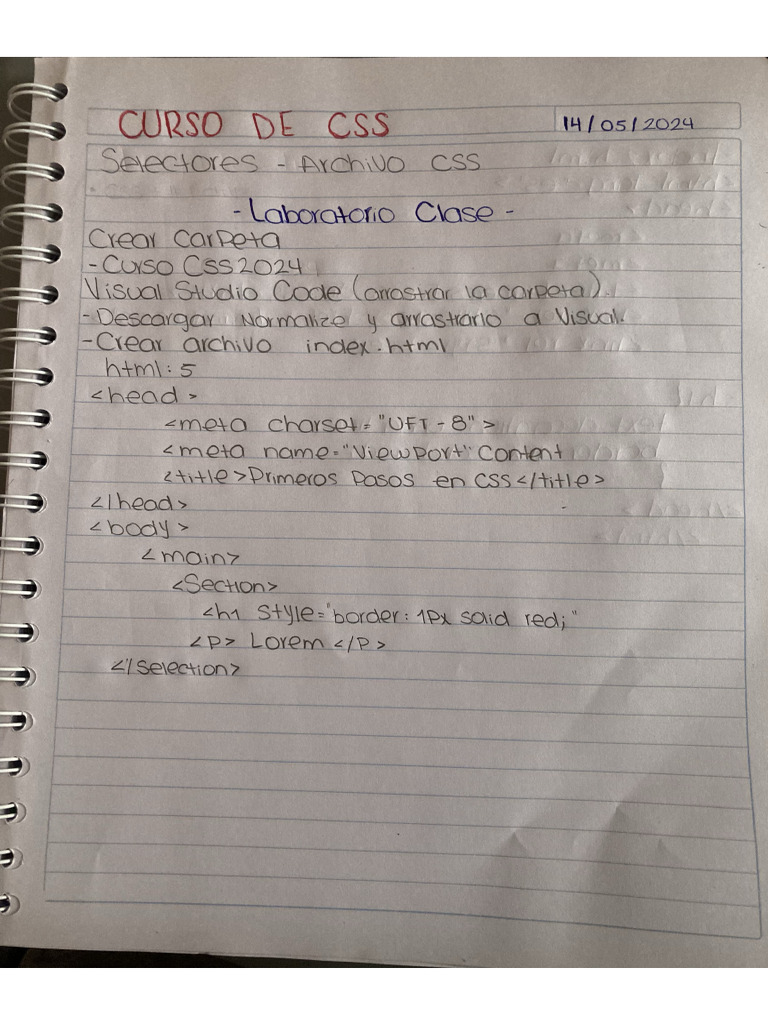 CURSO DE CSS
14/05/2024
Selectores - Archivo CSS
- Laboratorio Clase -
Crear Carpeta
- Curso CSS2024
Visual Studio Code (arrastrar la carpeta).
- Descargar Normalize y arrastrarlo a Visual.
- Crear archivo index.html
html:5
<head>
<meta charset="UFT-8">
<meta name="Viewport" Content
<title>Primeros Pasos en CSS</title>
</head>
<body>
<main>
<Section>
<h1 Style="border: 1Px soild red;"
<P> Lorem </P>
</Selection>